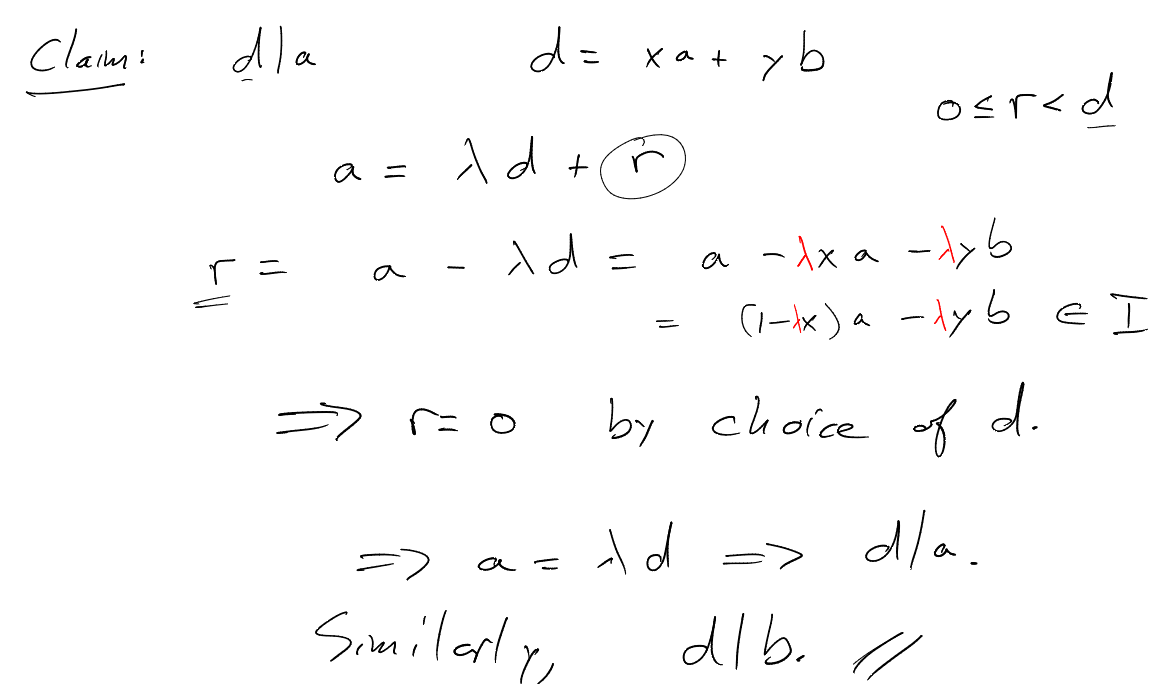 Claim: d|a d = xa + yb
0 ≤ r < d
a = λd + r
r = a - λd = a - λxa - λyb
= (1-λx)a - λyb ∈ I
⟹ r = 0 by choice of d.
⟹ a = λd ⟹ d|a.
Similarly, d|b. //